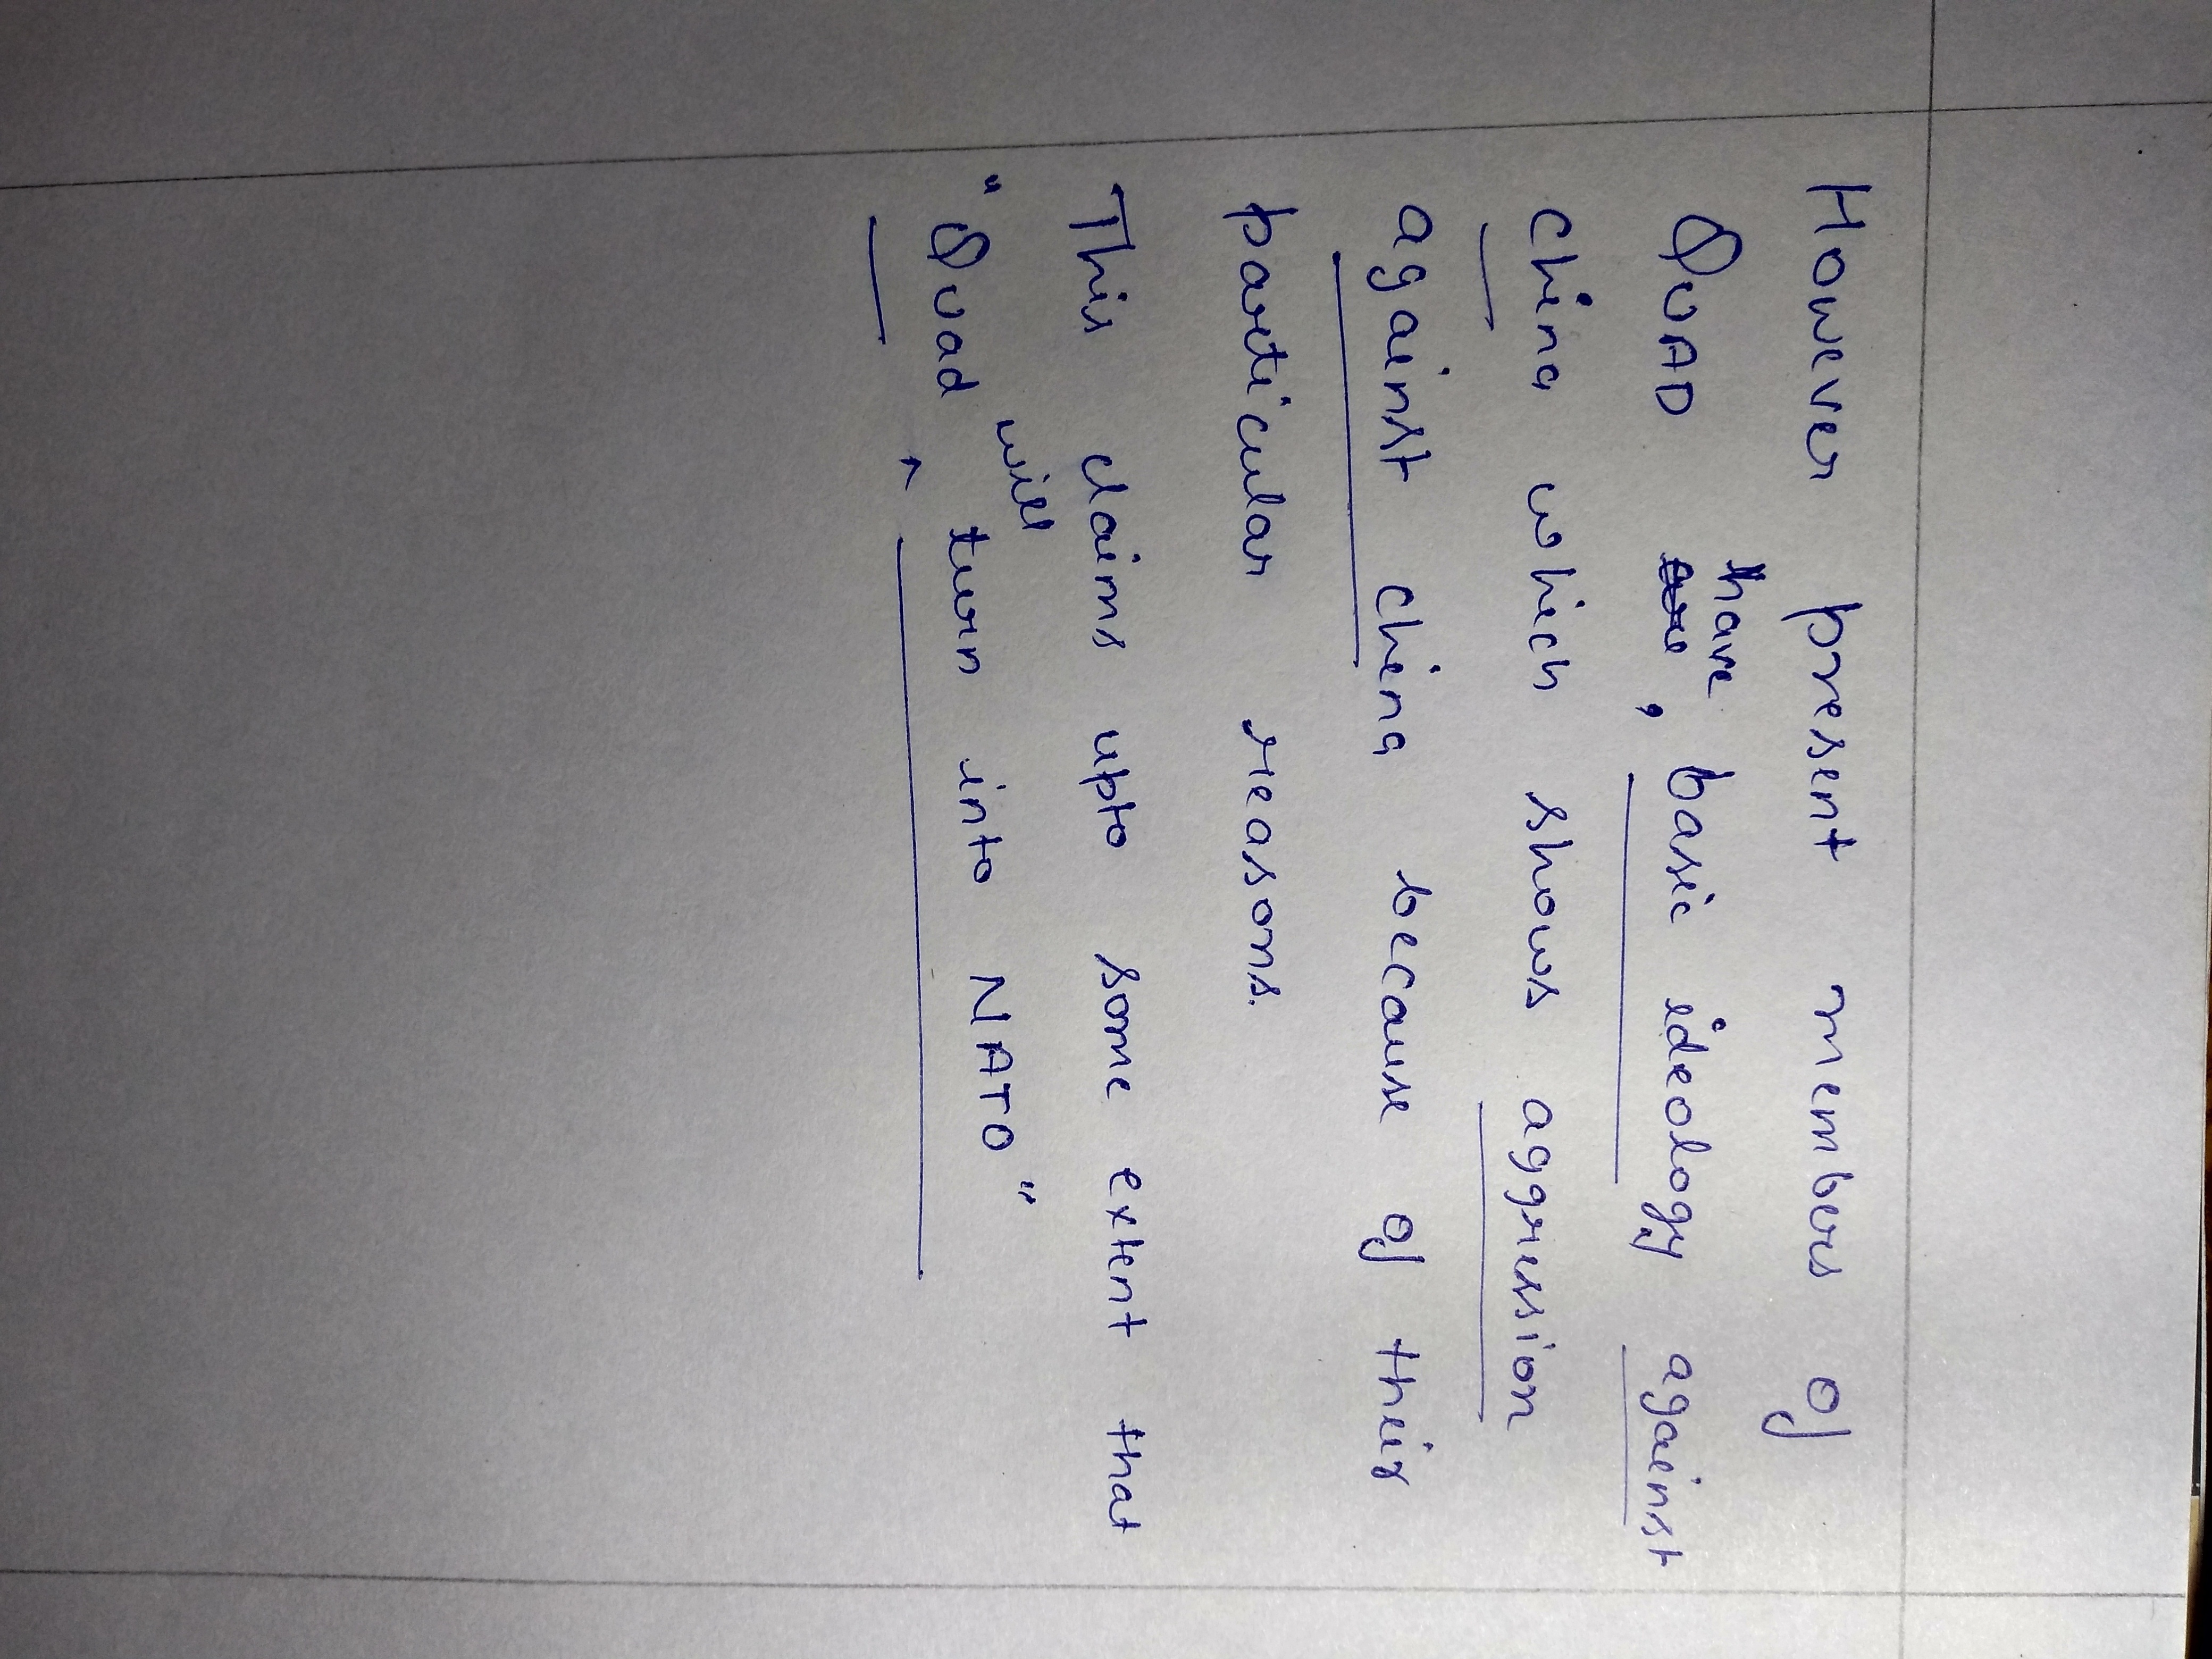 However present members of
QUAD have, basic ideology against
china which shows aggression
against china because of their
particular reasons.
This claims upto some extent that
"Quad will turn into NATO"